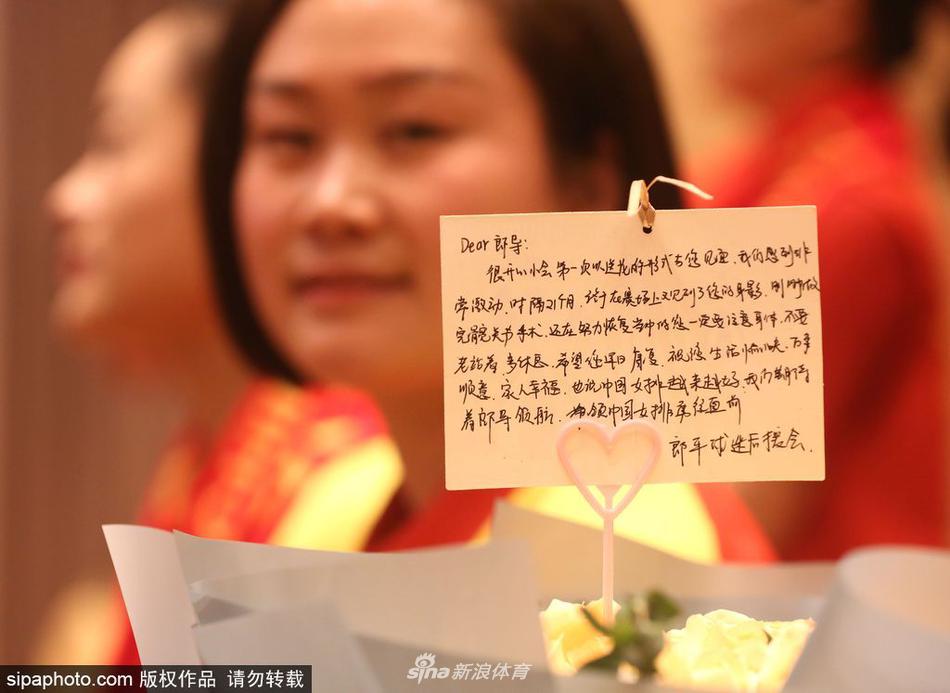 Dear 郎导:
很开心小会第一次以送花的形式与您见面,我们感到非
常激动,时隔21个月,终于在赛场上又见到了您的身影,刚刚做
完髋关节手术,还在努力恢复当中的您一定要注意身体,不要
老站着,多休息,希望您早日康复,祝您生活愉快,万事
顺意,家人幸福,也祝中国女排越来越好,我们期待
着郎导领航,带领中国女排席往直前
郎平球迷后援会.
sina新浪体育
sipaphoto.com 版权作品 请勿转载